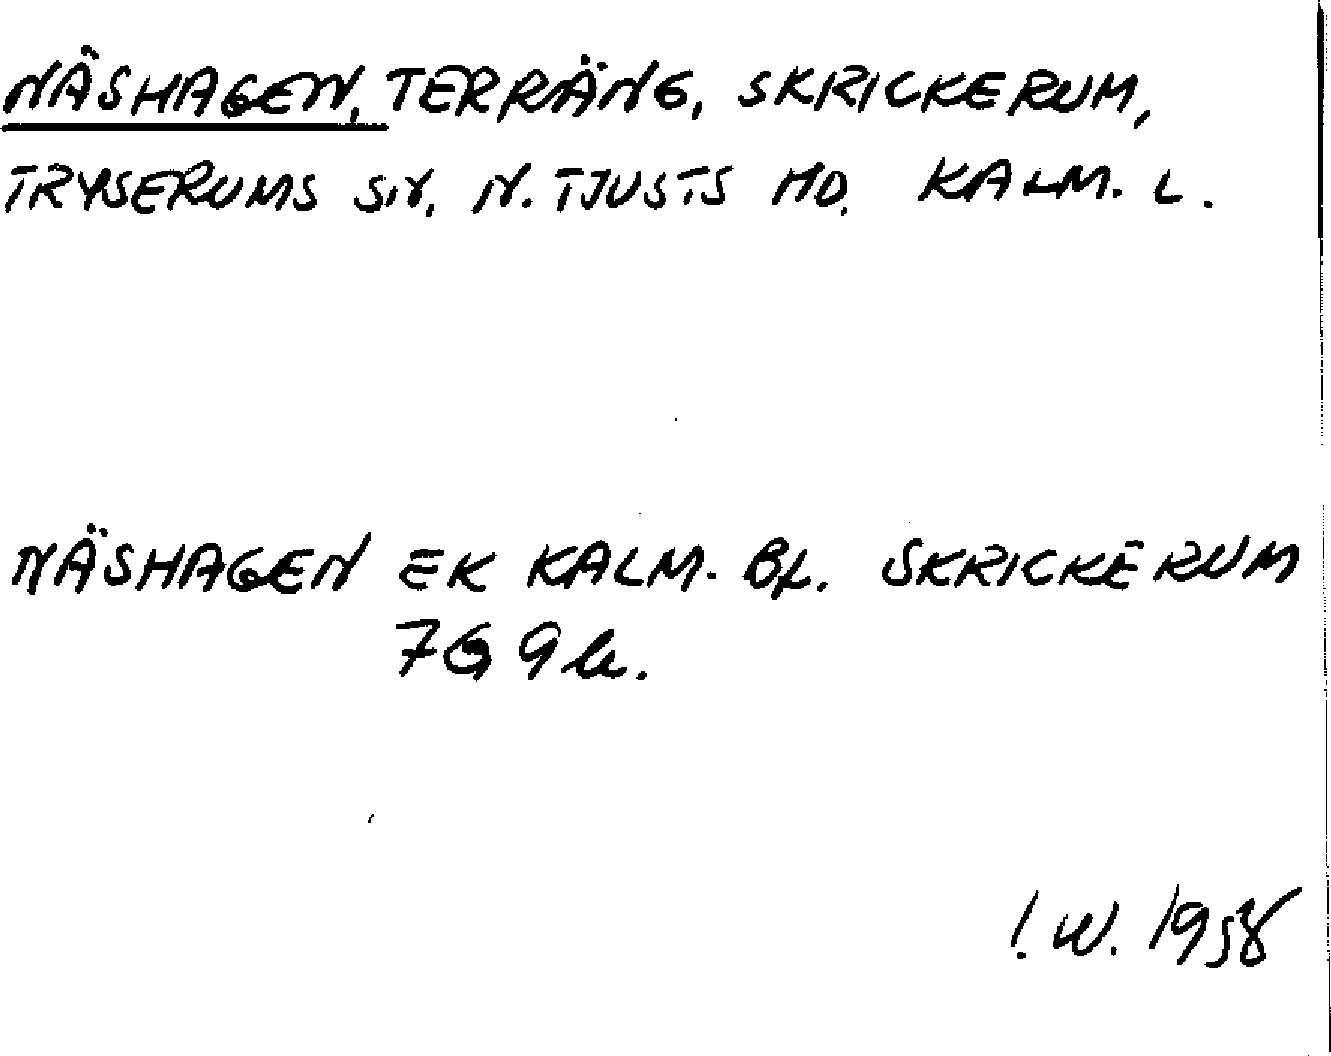 NÄSHAGEN, TERRÄNG, SKRICKERUM,
TRYSERUMS SN, N. TJUSTS HD. KALM. L.
NÄSHAGEN EK KALM. Bl. SKRICKERUM
7G 9h.
! W. 1958